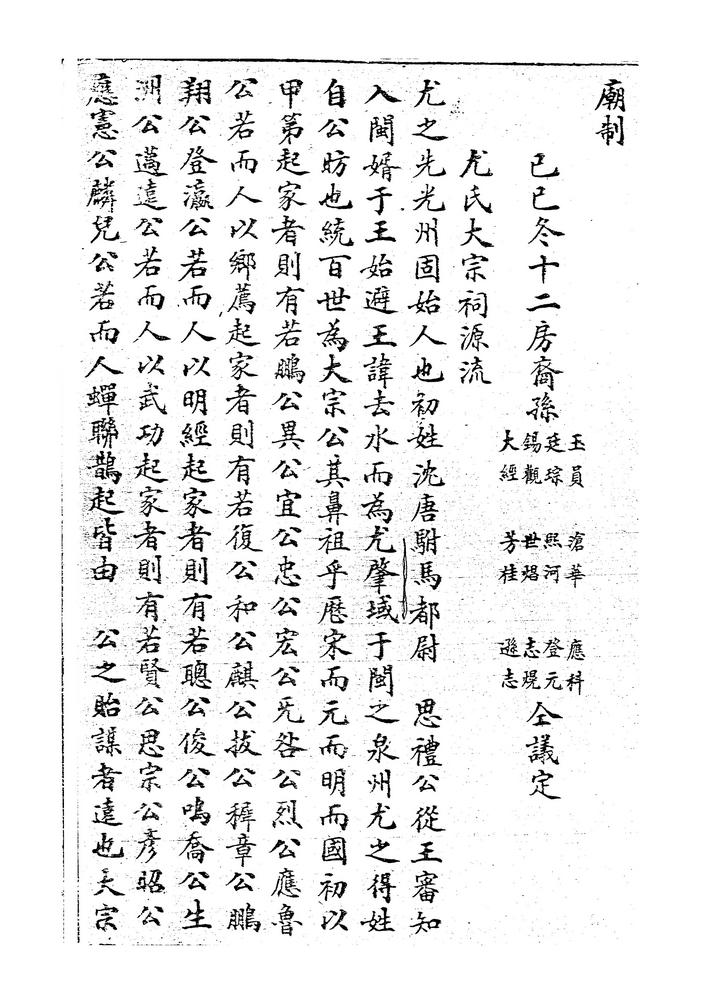 廟制
己巳冬十二房裔孫
玉員 滄華 應科
廷琮 熙河 登元
錫觀 世焻 志焜
大經 芳桂 遜志
仝議定
尤氏大宗祠源流
尤之先光州固始人也初姓沈唐駙馬都尉 思禮公從王審知
入閩婿于王始避王諱去水而為尤肇域于閩之泉州尤之得姓
自公昉也統百世為大宗公其鼻祖乎歷宋而元而明而國初以
甲第起家者則有若鵬公異公宜公忠公宏公旡咎公烈公應魯
公若而人以鄉薦起家者則有若復公和公麒公拔公穉章公鵬
翔公登瀛公若而人以明經起家者則有若聰公俊公鳴喬公生
洲公邁遠公若而人以武功起家者則有若賢公思宗公彥昭公
應憲公麟兒公若而人蟬聯鵲起皆由 公之貽謀者遠也夫宗